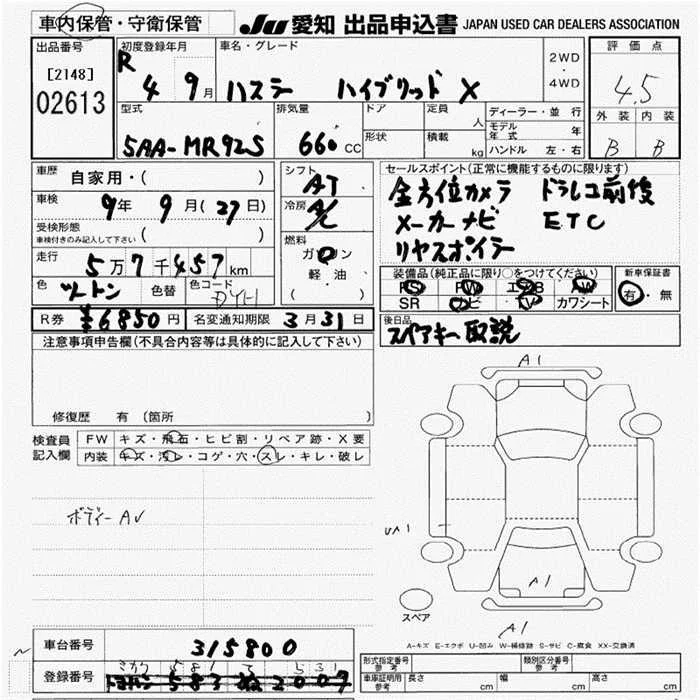 車内保管・守衛保管
JU 愛知 出品申込書 JAPAN USED CAR DEALERS ASSOCIATION
出品番号 [2148] 02613
初度登録年月 R 4 9月
車名・グレード ハスラー ハイブリッド X
2WD・4WD
評価点 4.5
外装 内装
B B
型式 5AA-MR92S
排気量 660 CC
ドア
形状
定員 人
積載 kg
ディーラー・並行
モデル年式 年
ハンドル 左・右
車歴 自家用・( )
車検 9年 9月(27日)
受検形態 車検付きのみ記入して下さい ( )
走行 5万7千457km
色 ツートン 色替 色コード
R券 ¥6850円 名変通知期限 3月31日
シフト AT
冷房 A/C
燃料 ガソリン
軽油
( )
セールスポイント(正常に機能するものに限ります)
全方位カメラ ドラレコ前後
メーカーナビ ETC
リヤスポイラー
装備品(純正品に限り○をつけてください)
PS PW エアB AW
SR ナビ TV カワシート
新車保証書
有・無
後日品
スペアキー 取説
注意事項申告欄(不具合内容等は具体的に記入して下さい)
修復歴 有 (箇所
検査員記入欄
FW キズ・飛石・ヒビ割・リペア跡・X要
内装 キズ・汚レ・コゲ・穴・スレ・キレ・破レ
ボディーAU
A1
UA1
A1
A1
スペア
A-キズ E-エクボ U-凹み W-補修跡 S-サビ C-腐食 XX-交換済
車台番号 315800
登録番号 583 2007
581 531
形式指定番号 参考
類別区分番号 参考
車庫証明用 参考 長さ cm 幅 cm 高さ cm